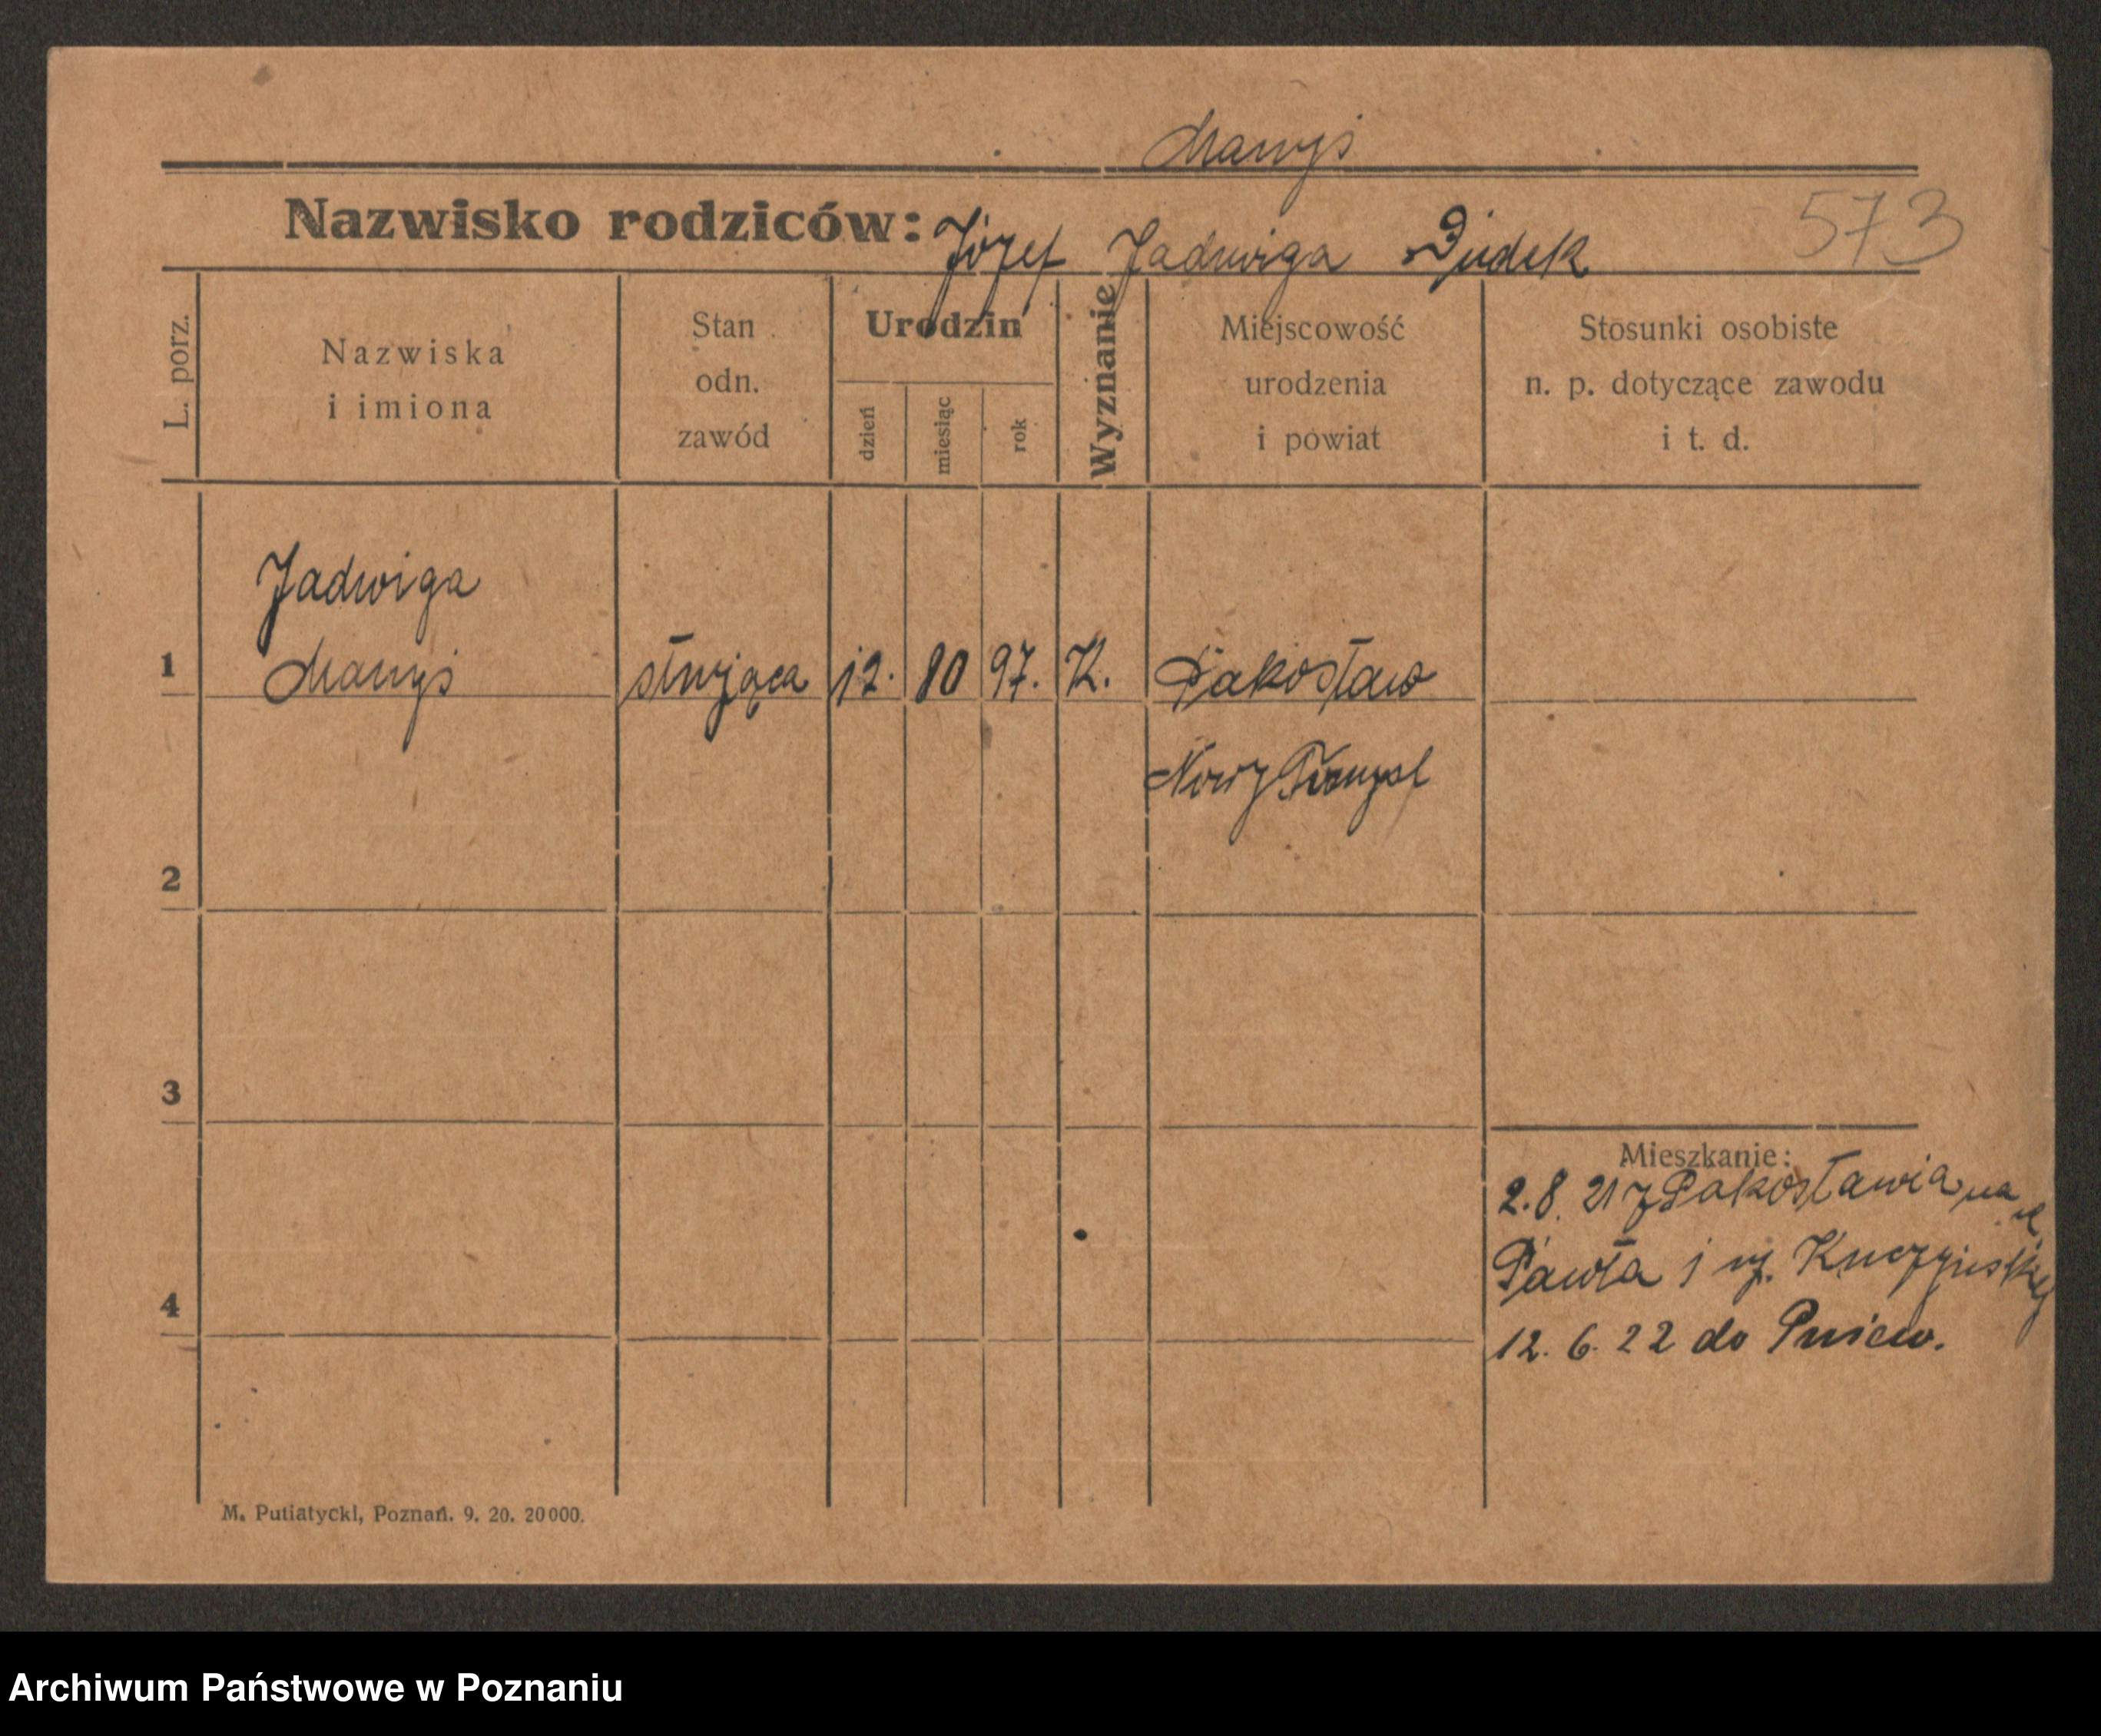 Manyś
Nazwisko rodziców: Józef Jadwiga Dudek
573
L. porz.
Nazwiska
i imiona
Stan
odn.
zawód
Urodzin
dzień
miesiąc
rok
Wyznanie
Miejscowość
urodzenia
i powiat
Stosunki osobiste
n. p. dotyczące zawodu
i t. d.
Jadwiga
1 Manyś służąca 12. 10 97. K. Pakosław
Nowy Tomysl
2
3
Mieszkanie:
2.8. 21 z Pakosławia na ul.
Pawła
4
12. 6. 22 do Pniew.
M. Putiatycki, Poznań. 9. 20. 20000.
Archiwum Państwowe w Poznaniu